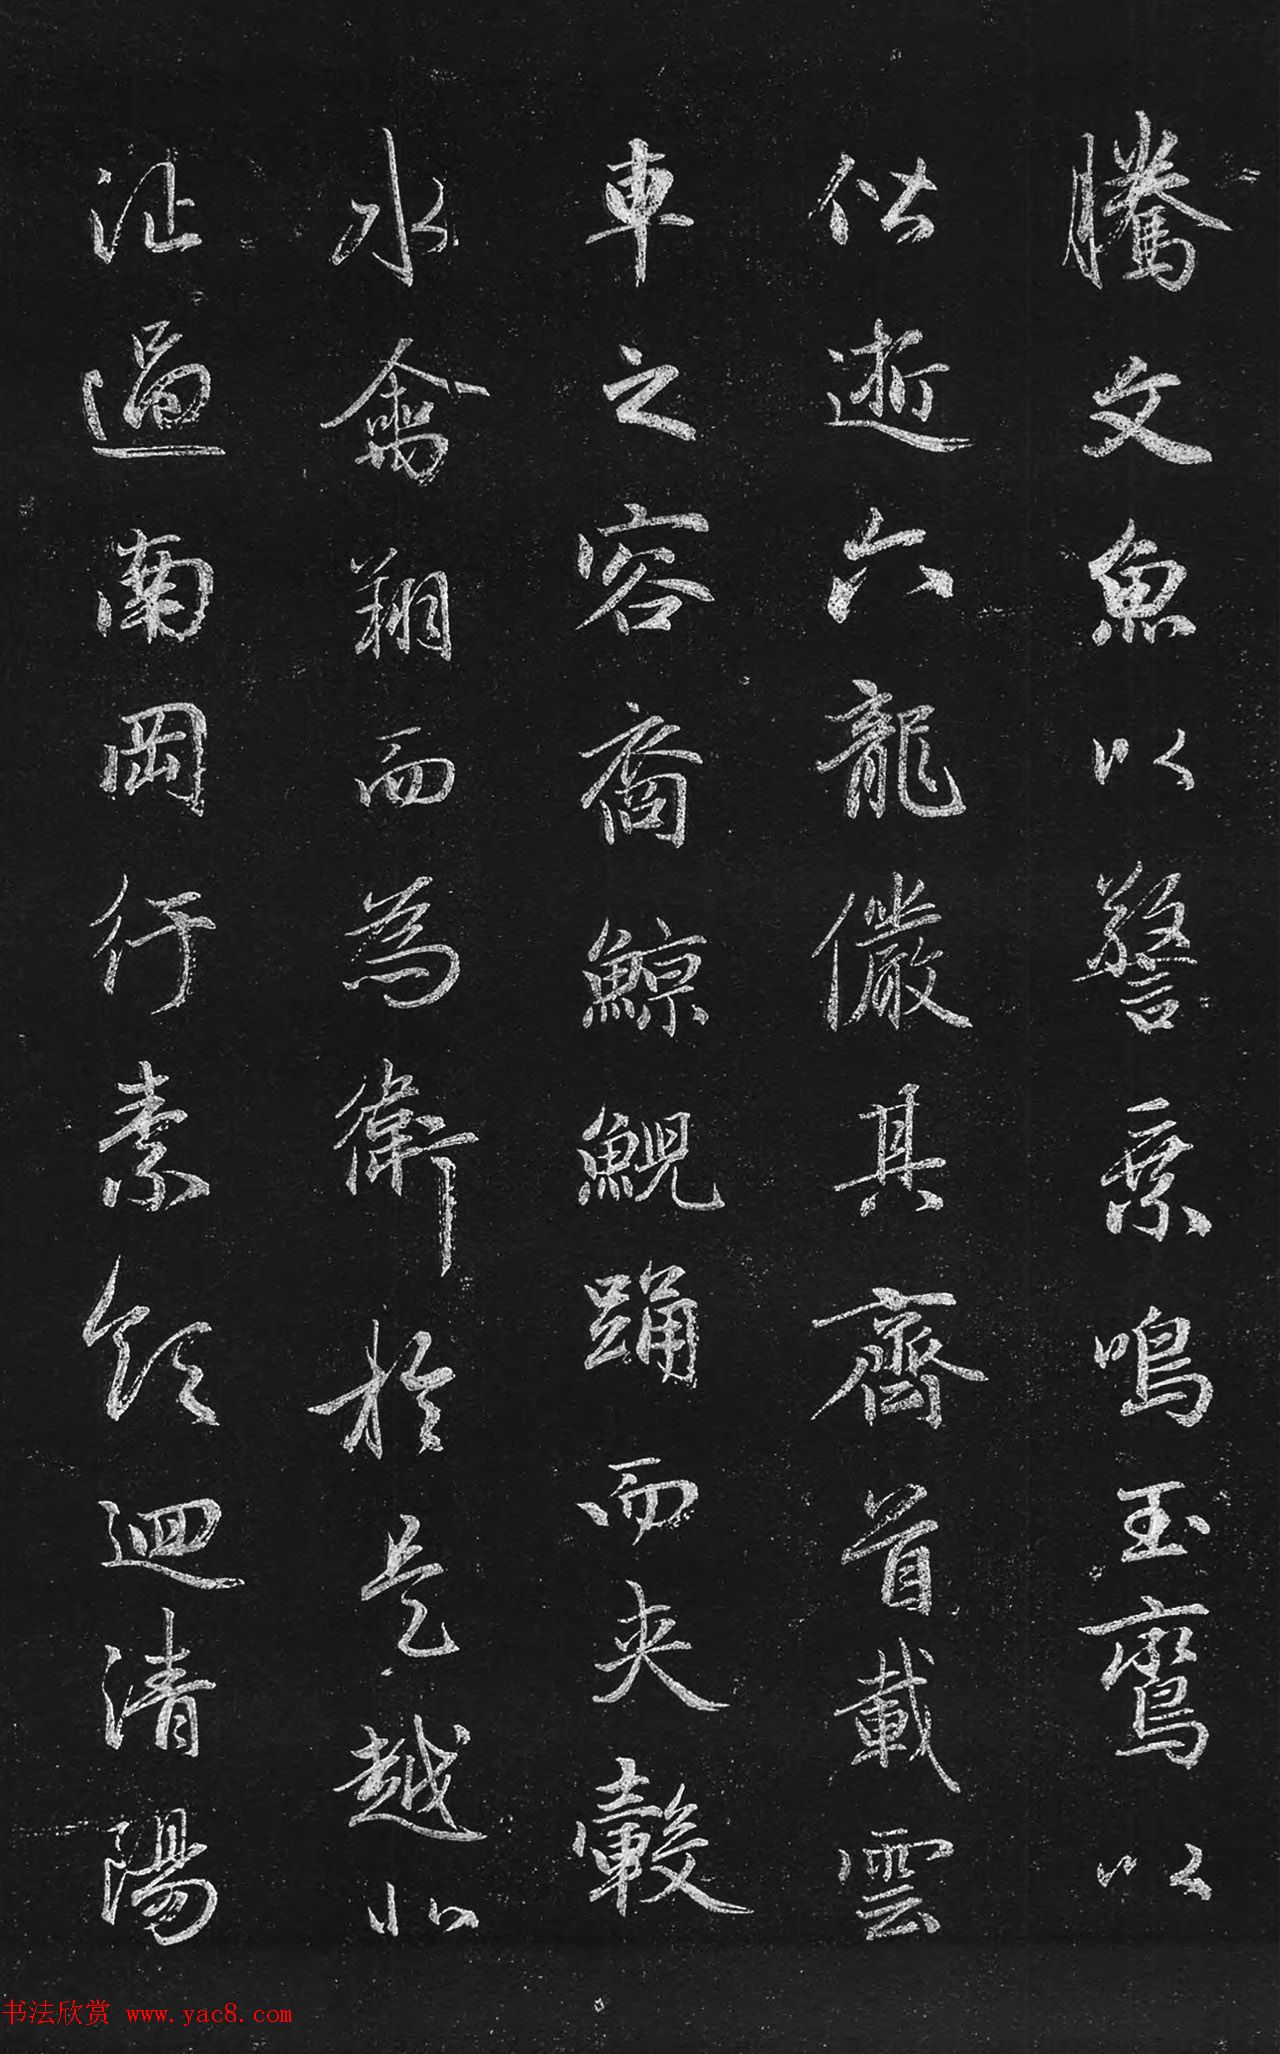 騰文魚以警乘鳴玉鸞以
偕逝六龍儼其齊首載雲
車之容裔鯨鯢踊而夾轂
水禽翔而為衛於是越北
沚過南岡紆素領迴清陽
书法欣赏 www.yac8.com